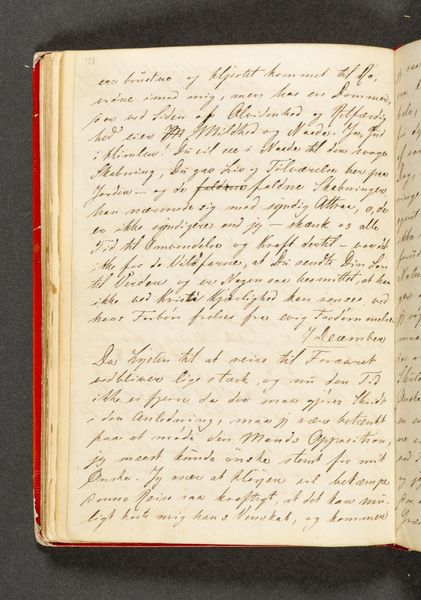 128
ere brustne og Hjertet kommet til Ro,
vidne imod mig, men han er Dommer,
ved Siden af Alvidenhed og Retfærdig
hed eier Mildhed og Naade. Ja, Gud
i Himlen! Du vil see i Naade til den svage
Skabning, Du gav Liv og Tilværelse her paa
Jorden – og de faldne Skabninger
han nærmede sig med syndig Attraa, o, de
er ikke syndigere end jeg – skænk os alle
Tid til Omvendelse og Kraft dertil – var det
ikke for de Vildfarne, at Du sendte Din Søn
til Verden og er Nogen saa besmittet, at han
ikke ved Kristi Kjærlighed kan renses, ved
hans Forbøn frelses fra evig Fordømmelse
7 December
Da Lysten til at reise til Foraaret
vedbliver lige stærk og nu den Tid
ikke er fjern da der maa gjøres Skridt
i den Anledning, maa jeg være betænkt
paa at møde den Mands Opposition,
jeg meest kunde ønske stemt for mit
Ønske. Jeg aner at Høyen vil bekæmpe
denne Reise saa kraftigt, at det kan mu-
ligt koste mig hans Venskab, og kommer